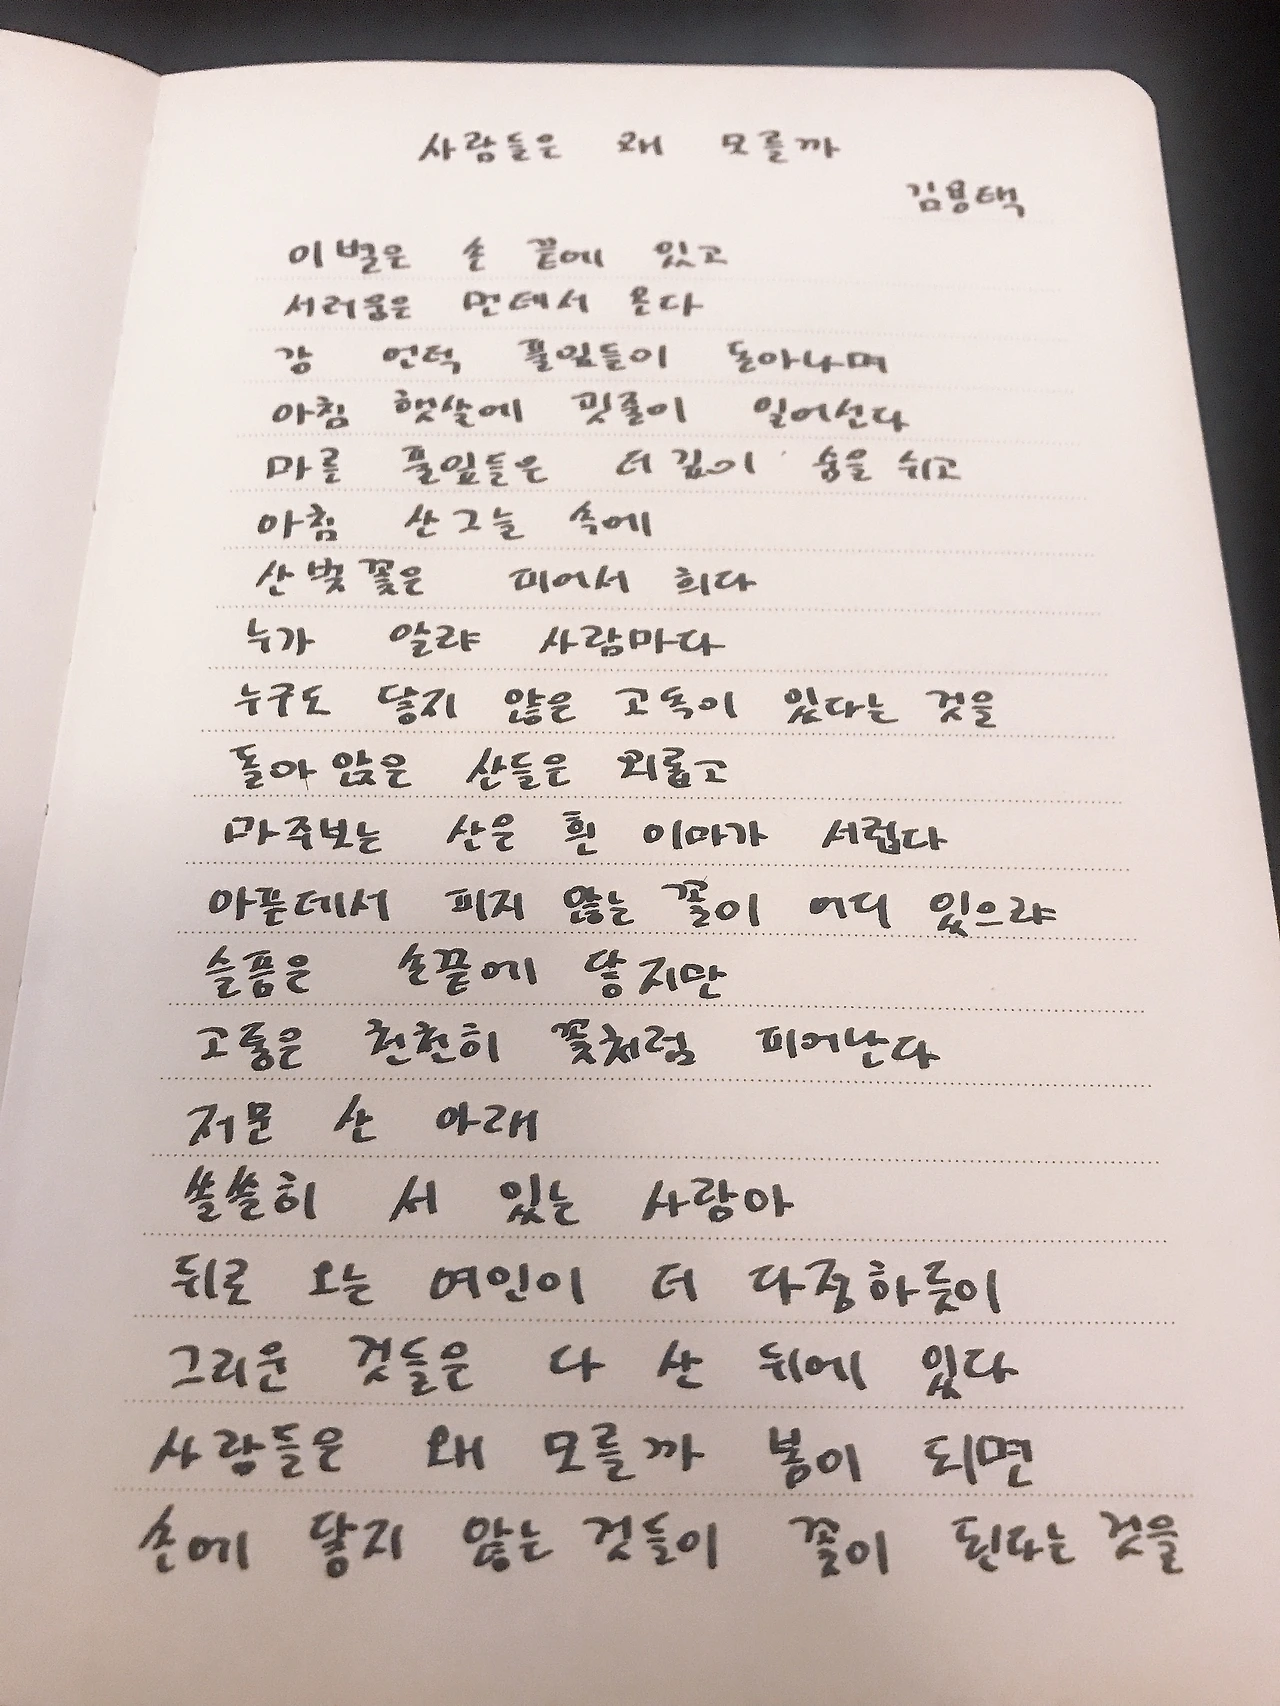 사람들은 왜 모를까
김용택
이별은 손 끝에 있고
서러움은 먼데서 온다
강 언덕 풀잎들이 돋아나며
아침 햇살에 핏줄이 일어선다
마른 풀잎들은 더 깊이 숨을 쉬고
아침 산그늘 속에
산벚꽃은 피어서 희다
누가 알랴 사람마다
누구도 닿지 않은 고독이 있다는 것을
돌아 앉은 산들은 외롭고
마주보는 산은 흰 이마가 서럽다
아픈데서 피지 않는 꽃이 어디 있으랴
슬픔은 손끝에 닿지만
고통은 천천히 꽃처럼 피어난다
저문 산 아래
쓸쓸히 서 있는 사람아
뒤로 오는 여인이 더 다정하듯이
그리운 것들은 다 산 뒤에 있다
사람들은 왜 모를까 봄이 되면
손에 닿지 않는 것들이 꽃이 된다는 것을